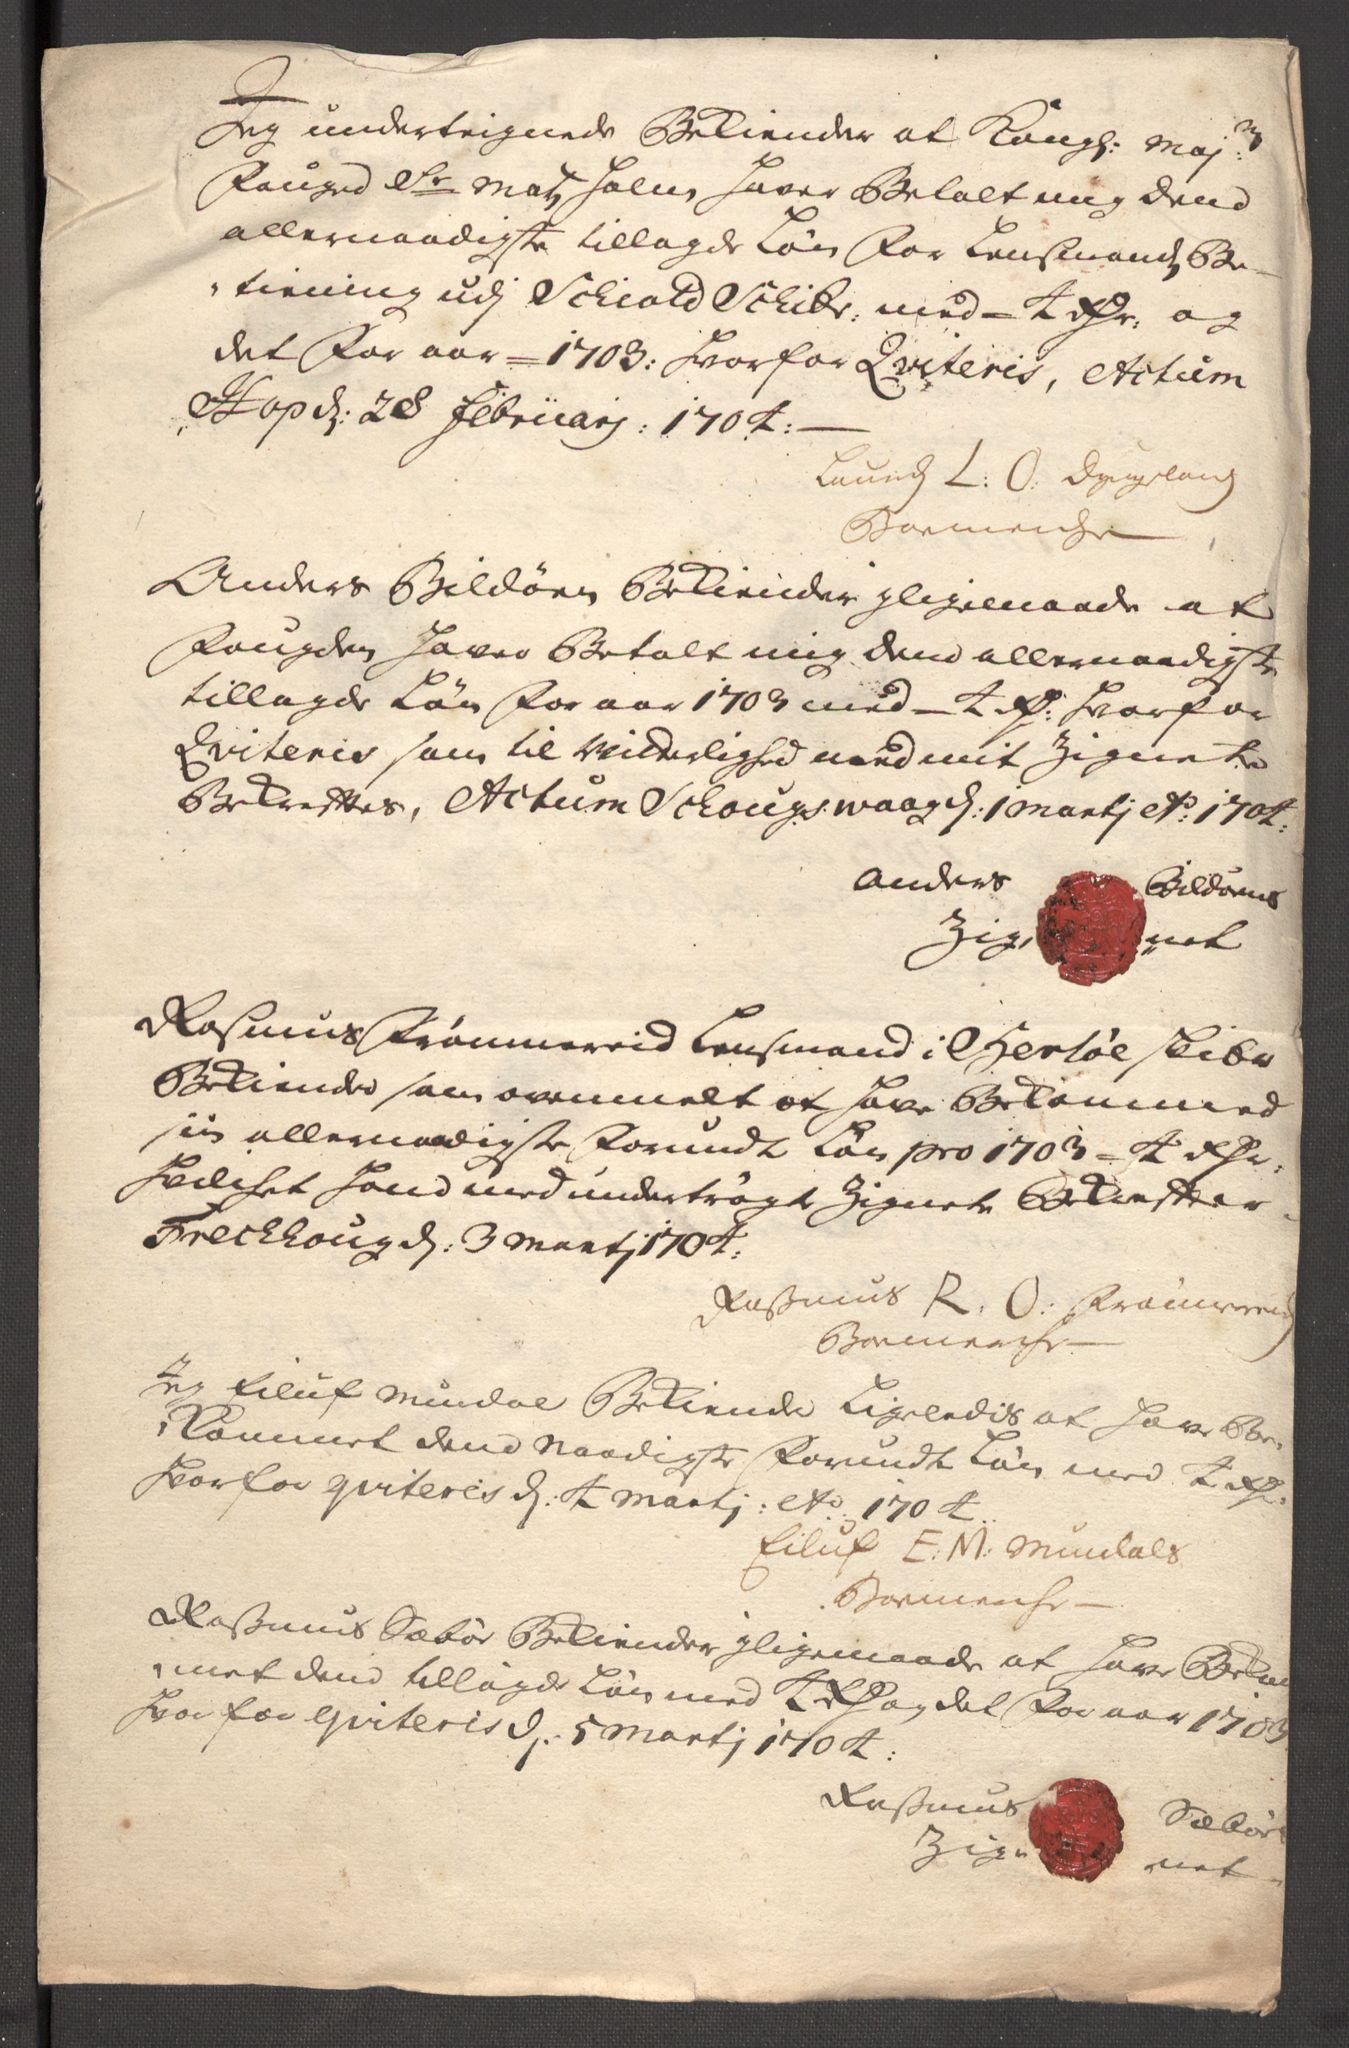 Jeg underteignede Bekiender at Kongl: Maj:
Fouged Sr. Mats Holm hafver Betalt mig dend
allernaadigste tillagde Løn for Lensmands Be-
tiening udj Schiold Schibr: med - 4 rdr: og
det for aar - 1703: hvorfor Qviteris, Actum
Hop d: 28 Februarj: 1704:
L: O:
Boemerche
Anders Bildøen Bekiender j ligemaade at
Fougden hafver Betalt mig dend allernaadigste
tillagde Løn for aar 1703 med - 4 rdr: hvorfor
Qviteris som til Vitterlighed med mit Zignete
Bekreftes, Actum Schougswaag d: 1 Martj Ao: 1704:
Anders Bildøens
Zig net
Rasmus Frommereid Lensmand i Herløe skibr
Bekiender som ovenmelt at hafve Bekommed
sin allernaadigste forundt Løn pro 1703 - 4 rdr:
hvilchet hand med undertrøgt Zignete Bekrefter
Frechhoug d: 3 Martj 1704:
Rasmus R. O: Frommereid
Boemerche
Jeg Eiluf Mundal Bekiender Ligeledis at hafve Be-
kommet dend Naadigste forundt Løn med 4 rdr:
hvorfor qviteris d: 4 Martj: Ao: 1704
Eiluf E: M: Mundals
Boemerche
Rasmus Sæbøe Bekiender j ligemaade at hafve Bekom
met dend tillagde Løn med 4 rdr og det for aar 1703
hvorfor qviteris d: 5 Martj 1704:
Rasmus Sæbøe
Zig net